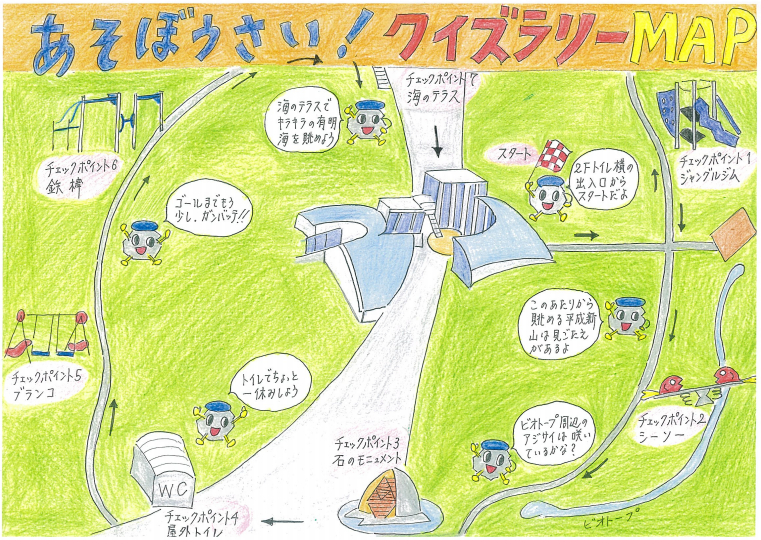 あそぼうさい！クイズラリーMAP
チェックポイント7
海のテラス
海のテラスで
キラキラの有明
海を眺めよう
スタート
2Fトイレ横の
出入口から
スタートだよ
チェックポイント1
ジャングルジム
チェックポイント6
鉄棒
ゴールまでもう
少し、ガンバッテ!!
このあたりから
眺める平成新
山は見ごたえ
があるよ
チェックポイント5
ブランコ
トイレでちょっと
一休みしよう
チェックポイント2
シーソー
ビオトープ周辺の
アジサイは咲い
ているかな?
チェックポイント3
石のモニュメント
WC
チェックポイント4
屋外トイレ
ビオトープ